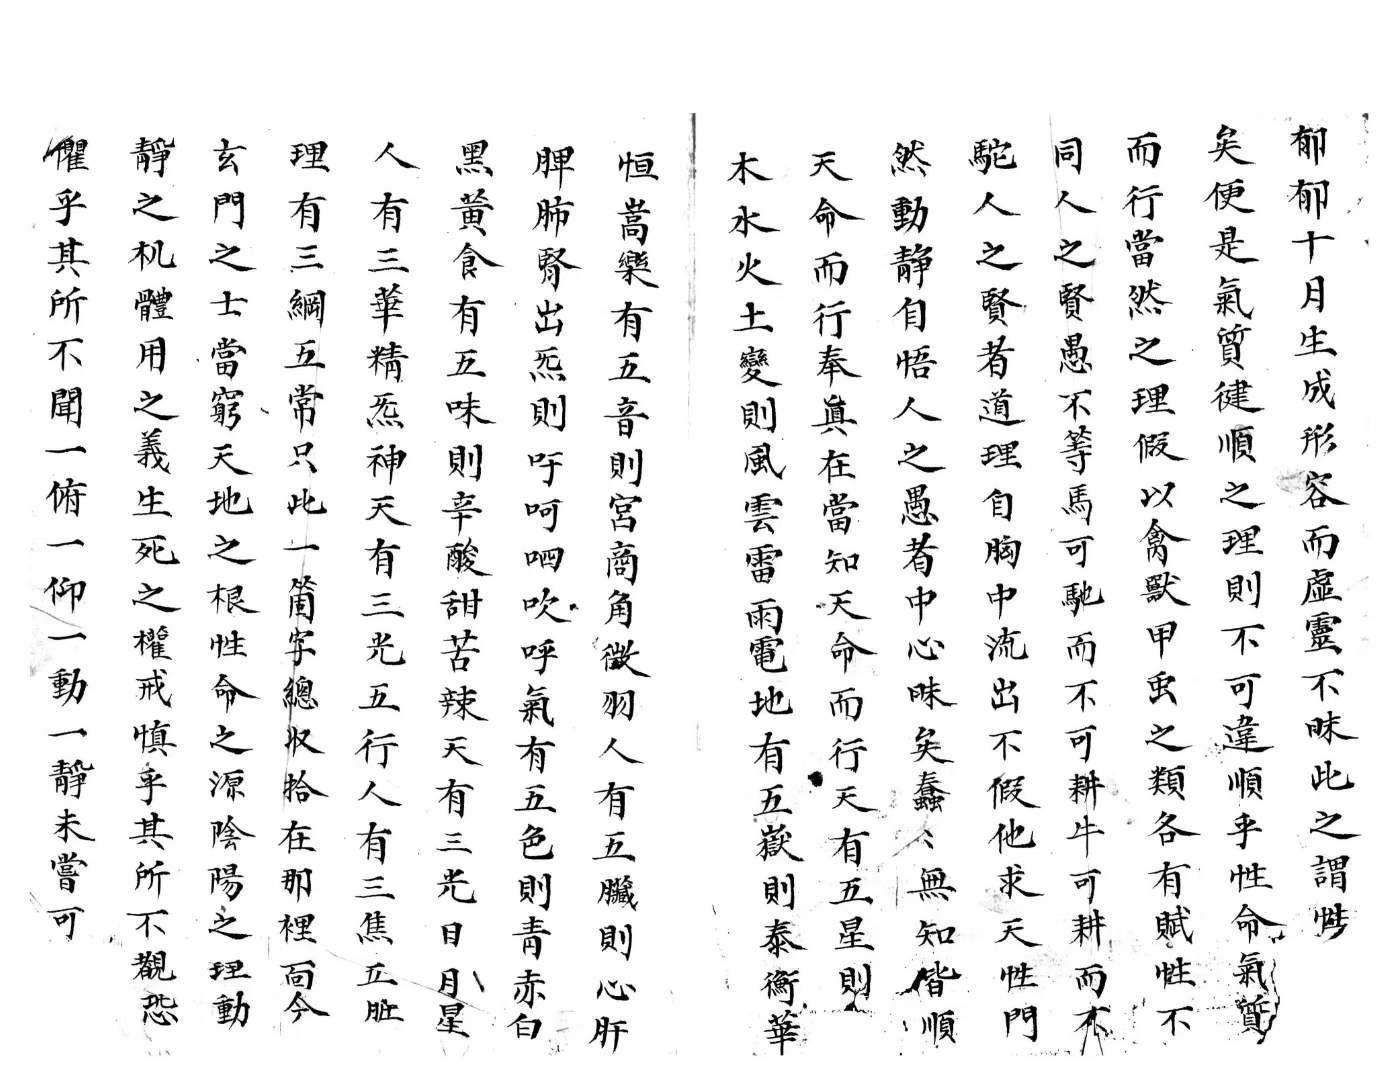 郁郁十月生成形容而虛靈不昧此之謂性
矣便是氣質健順之理則不可違順乎性命氣質
而行當然之理假以禽獸甲虫之類各有賦性不
同人之賢愚不等馬可馳而不可耕牛可耕而不
駝人之賢者道理自胸中流出不假他求天性門
然動静自悟人之愚者中心昧矣蠢〻無知皆順
天命而行奉真在當知天命而行天有五星則
木水火土變則風雲雷雨電地有五嶽則泰衡華
恒嵩欒有五音則宮商角徴羽人有五臟則心肝
脾肺腎出炁則吁呵呬吹呼氣有五色則青赤白
黑黃食有五味則辛酸甜苦辣天有三光日月星
人有三華精炁神天有三光五行人有三焦五脏
理有三綱五常只此一箇字總収拾在那裡面今
玄門之士當窮天地之根性命之源陰陽之理動
靜之机體用之義生死之權戒慎乎其所不覩恐
懼乎其所不聞一俯一仰一動一靜未嘗可